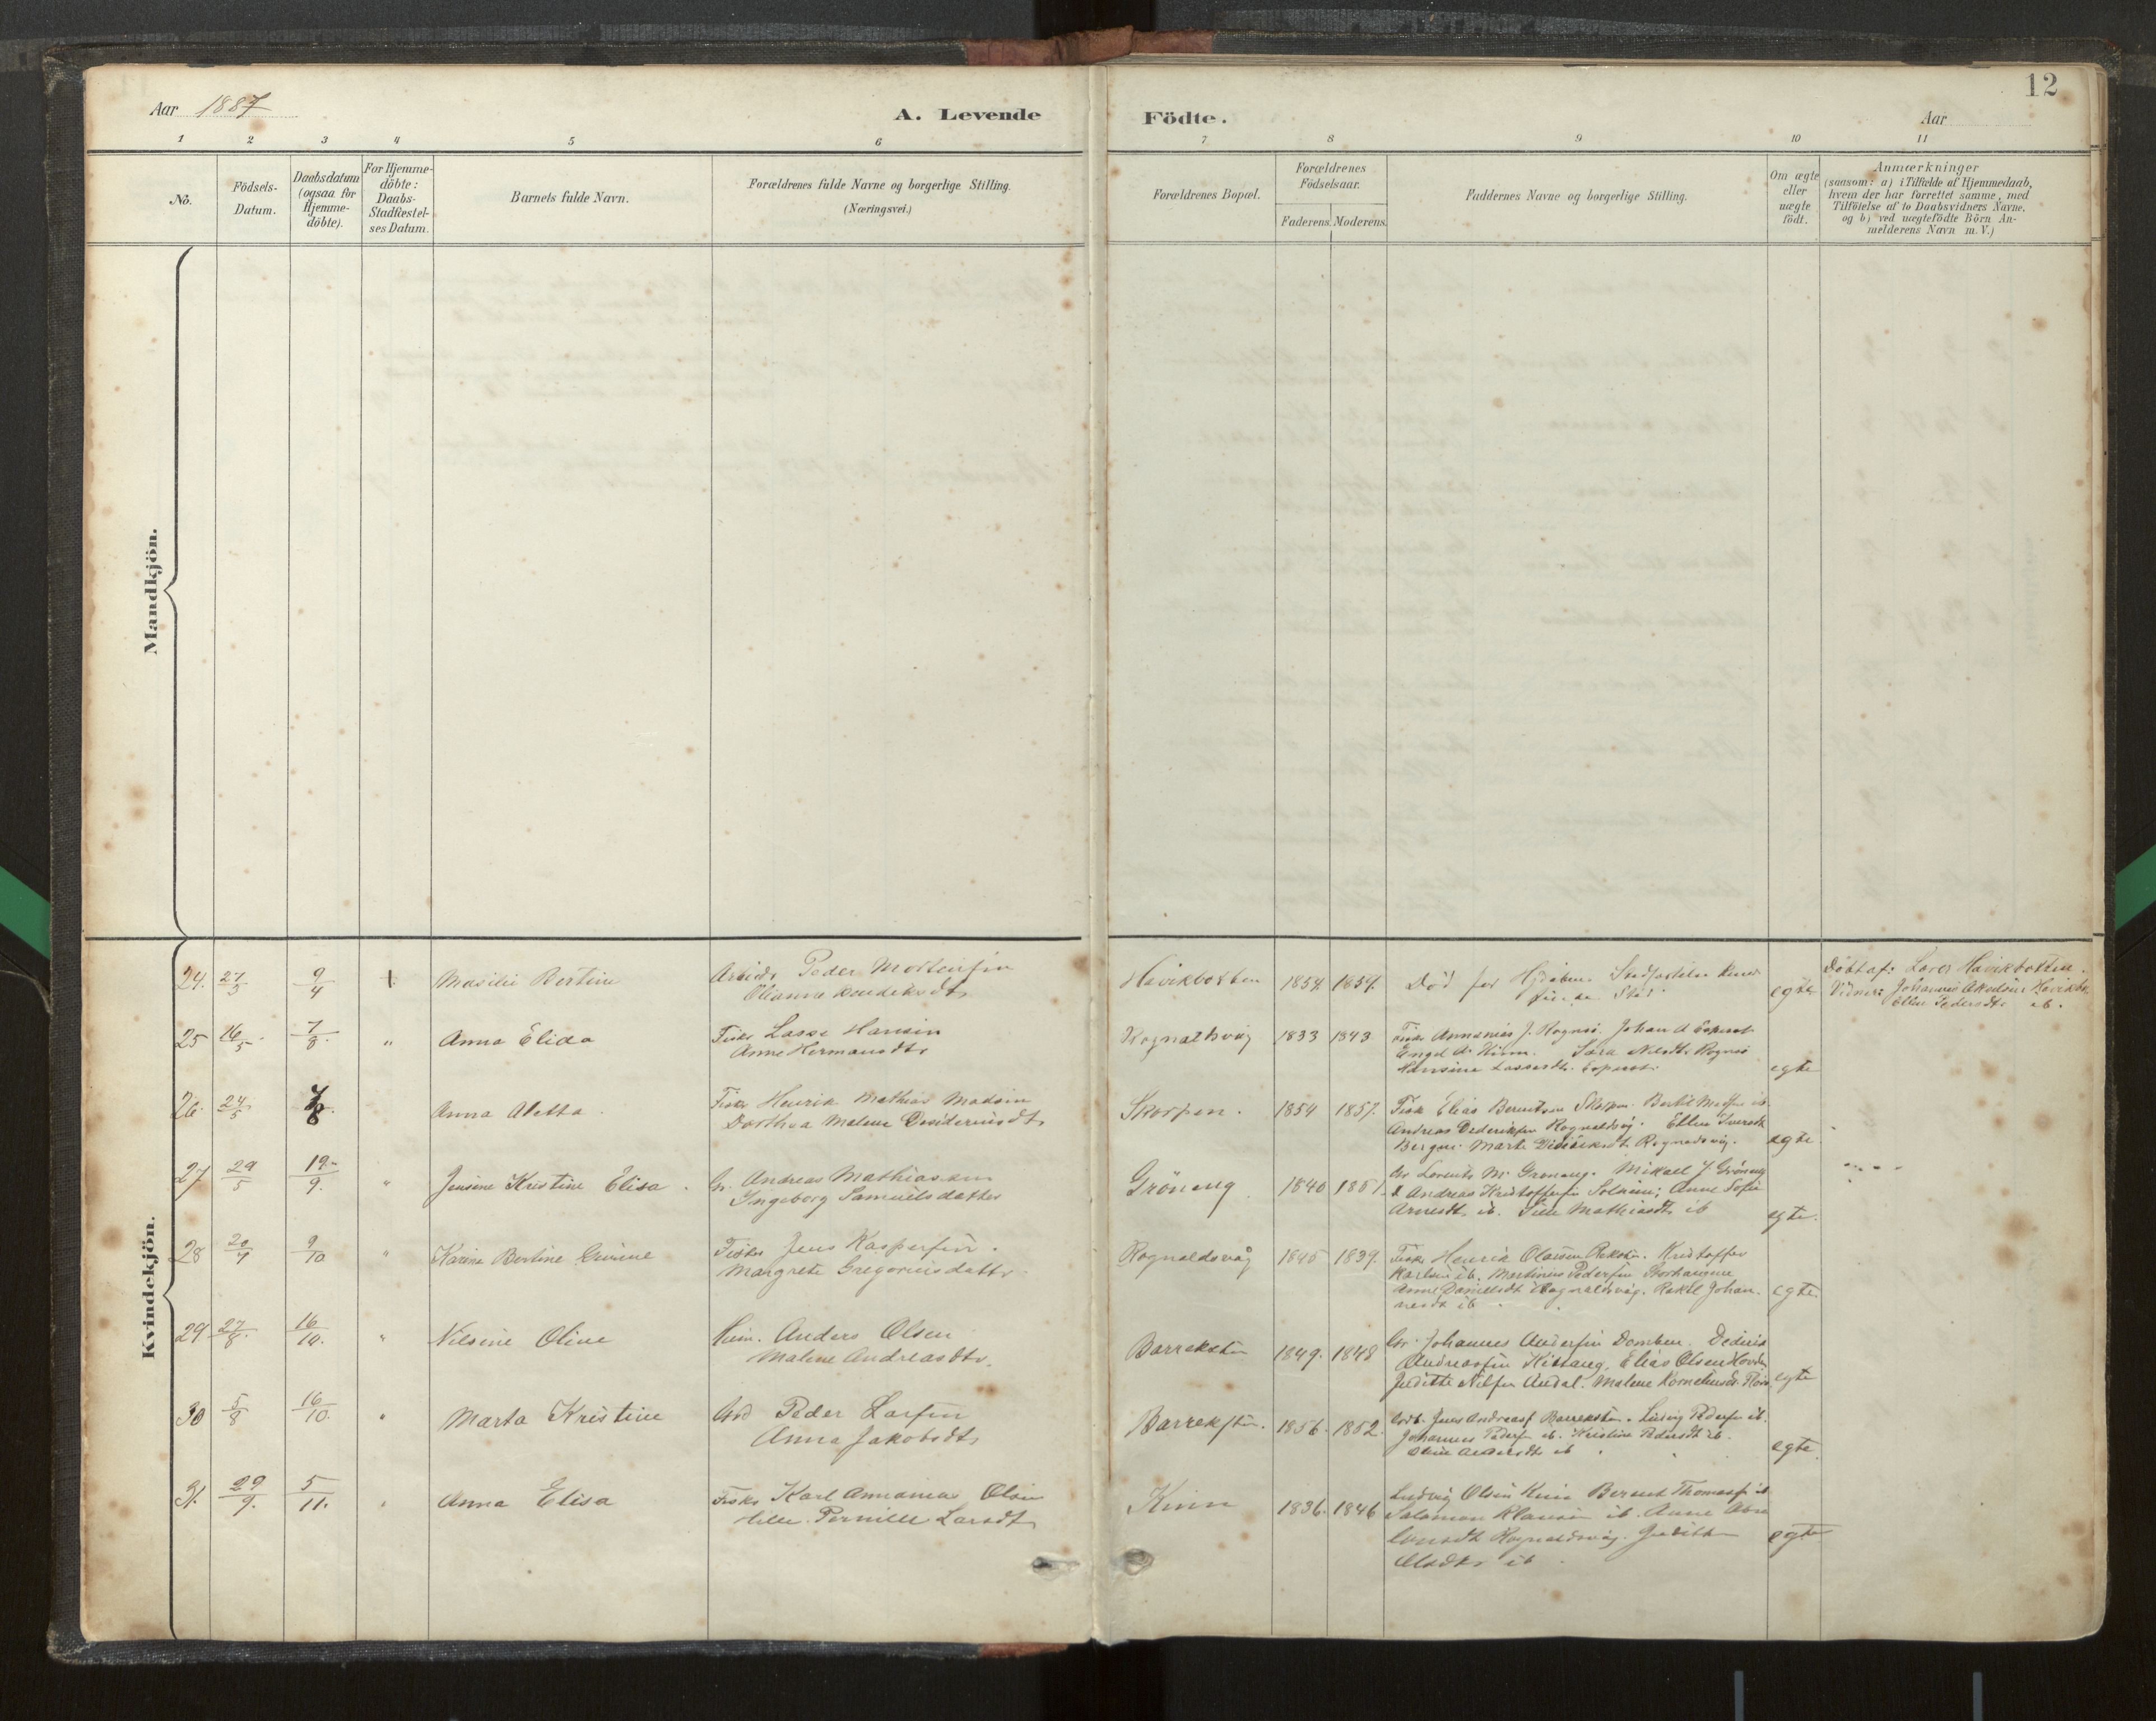 12
Aar 1887
A. Levende Födte.
Aar
1 2 3 4 5 6 7 8 9 10 11
No.
Födsels-
Datum.
Daabsdatum
(ogsaa for
Hjemme-
döbte).
For Hjemme-
döbte:
Daabs-
Stadfæstel-
ses Datum.
Barnets fulde Navn.
Forældrenes fulde Navne og borgerlige Stilling.
(Næringsvei.)
Forældrenes Bopæl.
Forældrenes
Födselsaar.
Faderens. Moderens.
Faddernes Navne og borgerlige Stilling.
Om ægte
eller
uægte
födt.
Anmærkninger
(saasom: a) i Tilfælde af Hjemmedaab,
hvem der har forrettet samme, med
Tilföielse af to Daabsvidners Navne,
og b) ved uægtefödte Börn An-
melderens Navn m. V.)
Mandkjön.
Kvindekjön.
24. 27/3 9/4 Bertine
Peder Mortensen
Olianne
Havikbotten 1854. 1859.
Död før
egte
Döbt af: Lars Havikbotten.
Vidner: Johannes
Ellen Pedersdtr ib.
25 16/5 7/8 " Anna Elida
Fisker Lasse Hansen
Anne Hermansdtr
Rognaldsvåg 1833 1843
Fisk. Annanias J. Rognø. Johan A
Engel A. Kinn. Sara Nilsdtr Rognø
Hansine Lassesdtr.
egte
26. 24/5 7/8. " Anna Aletta
Fisker Henrik Mathias Madsen
Dorthea Malene Desideriusdtr
Skorpen. 1854 1857.
Fisk Elias Berentsen Skorpen. Bertil
Andreas Dederiksen Rognaldsvåg. Ellen Iversdt
Marte Rognaldsvåg.
egte
27 29/5 19/9. " Jensine Kristine Elisa.
Gr. Andreas Mathiassen
Ingeborg Samuelsdatter
Gröneng 1840 1851
Gr Lorents M. Groneng. Mikael J. Gröneng
Andreas Kristoffersen Solheim; Anne Sofie
Arnesdt. ib. Sille Mathiasdtr ib
egte.
28 20/7 9/10 " Karina Bertine
Fisker Jens Kaspersen.
Margrete Gregoriusdatter
Rognaldsvåg 1845 1839.
Fisk. Henrik Olaisen Reksten. Kristoffer
Karlsen ib. Martinius Pedersen
Anne Danielsdt Rognaldsvåg. Rakel Johan-
nesdt ib
egte
29 27/8. 16/10. " Nilsine Oline
Anders Olsen
Malene Andreasdtr.
Barrekstin 1849. 1848
Gr. Johannes Andersen Domben.
Andreassen Elias Olsen Hovden
Juditte Nilsen Malene Korneliusdt.
egte
30 5/8 16/10. " Marta Kristine
Grd Peder Larsen
Anna Jakobsdtr
Barrekstin. 1856. 1852.
Jens Andreas Barrekstin. Ludvig Pedersen ib.
Johannes Peders ib. Kristine Pedersdt ib.
ib
egte
31. 29/9. 5/11. " Anna Elisa
Fisker Karl Annanias Olsen
Pernille Larsdt
Kinn 1836. 1846
Ludvig Olsen Kinn Berent Thomas ib
Salomon Klausen ib. Anne
Rognaldsvåg. Juditte
Olsdtr ib
egte